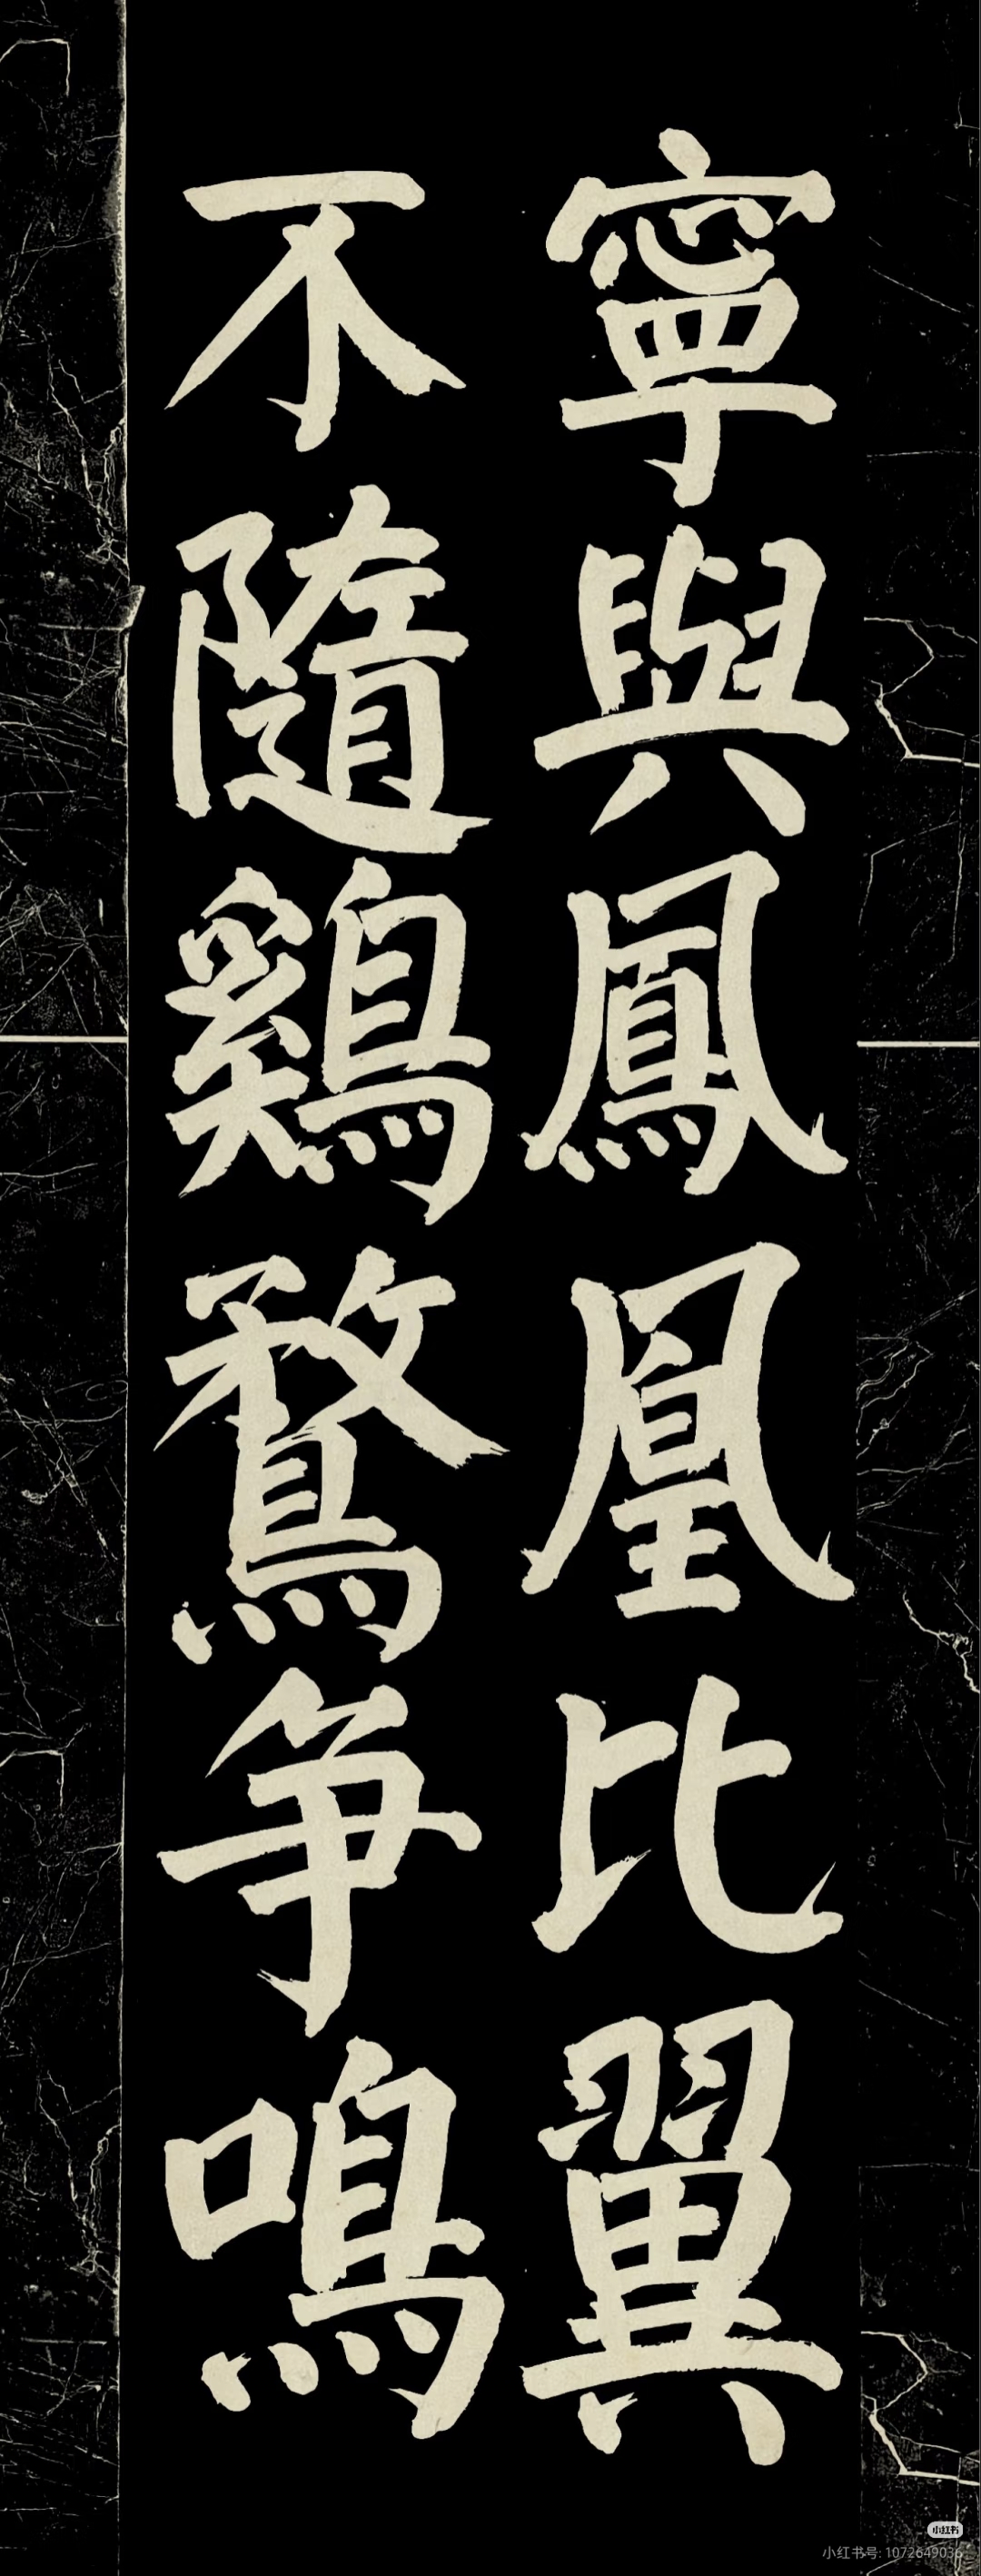 寧與鳳凰比翼
不隨鷄鶩争鳴
小红书
小红书号: 1072649036